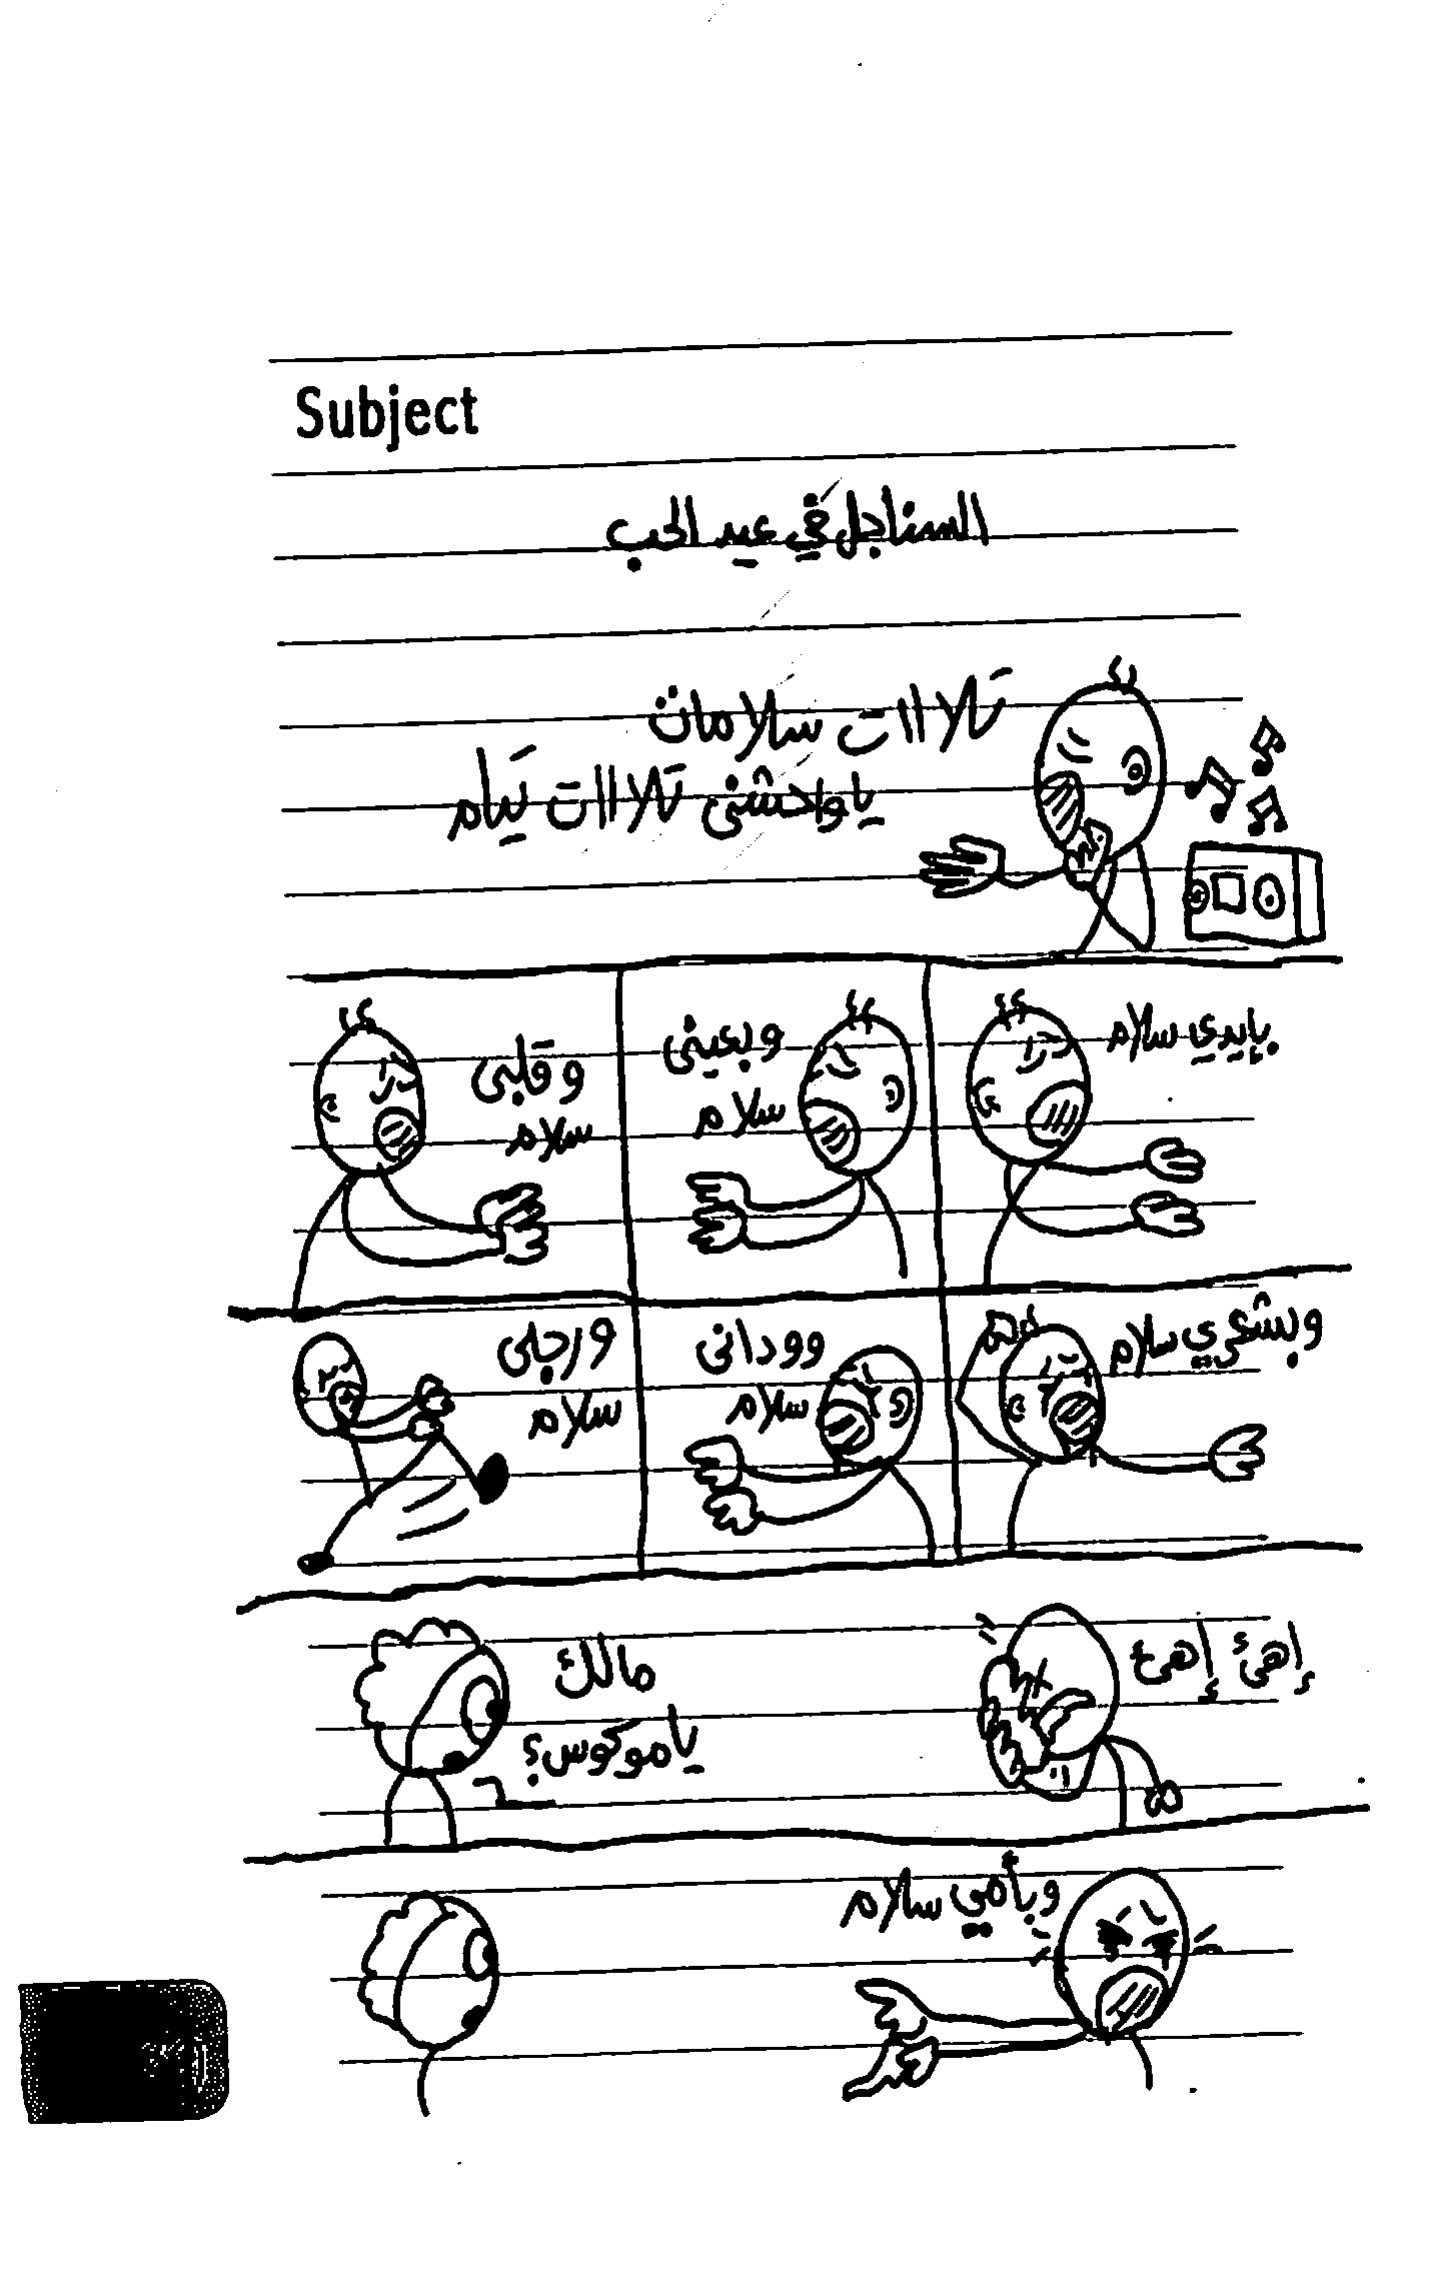 Subject
السناجل في عيد الحب
تَلااات سلامات
ياواحشنى تَلااات تيَام
بإيدي سلام
وبعينى
سلام
وقلبى
سلام
وبشعري سلام
وودانى
سلام
ورجلى
سلام
إهئ إهئ
مالك
ياموكوس؟
وبأمي سلام